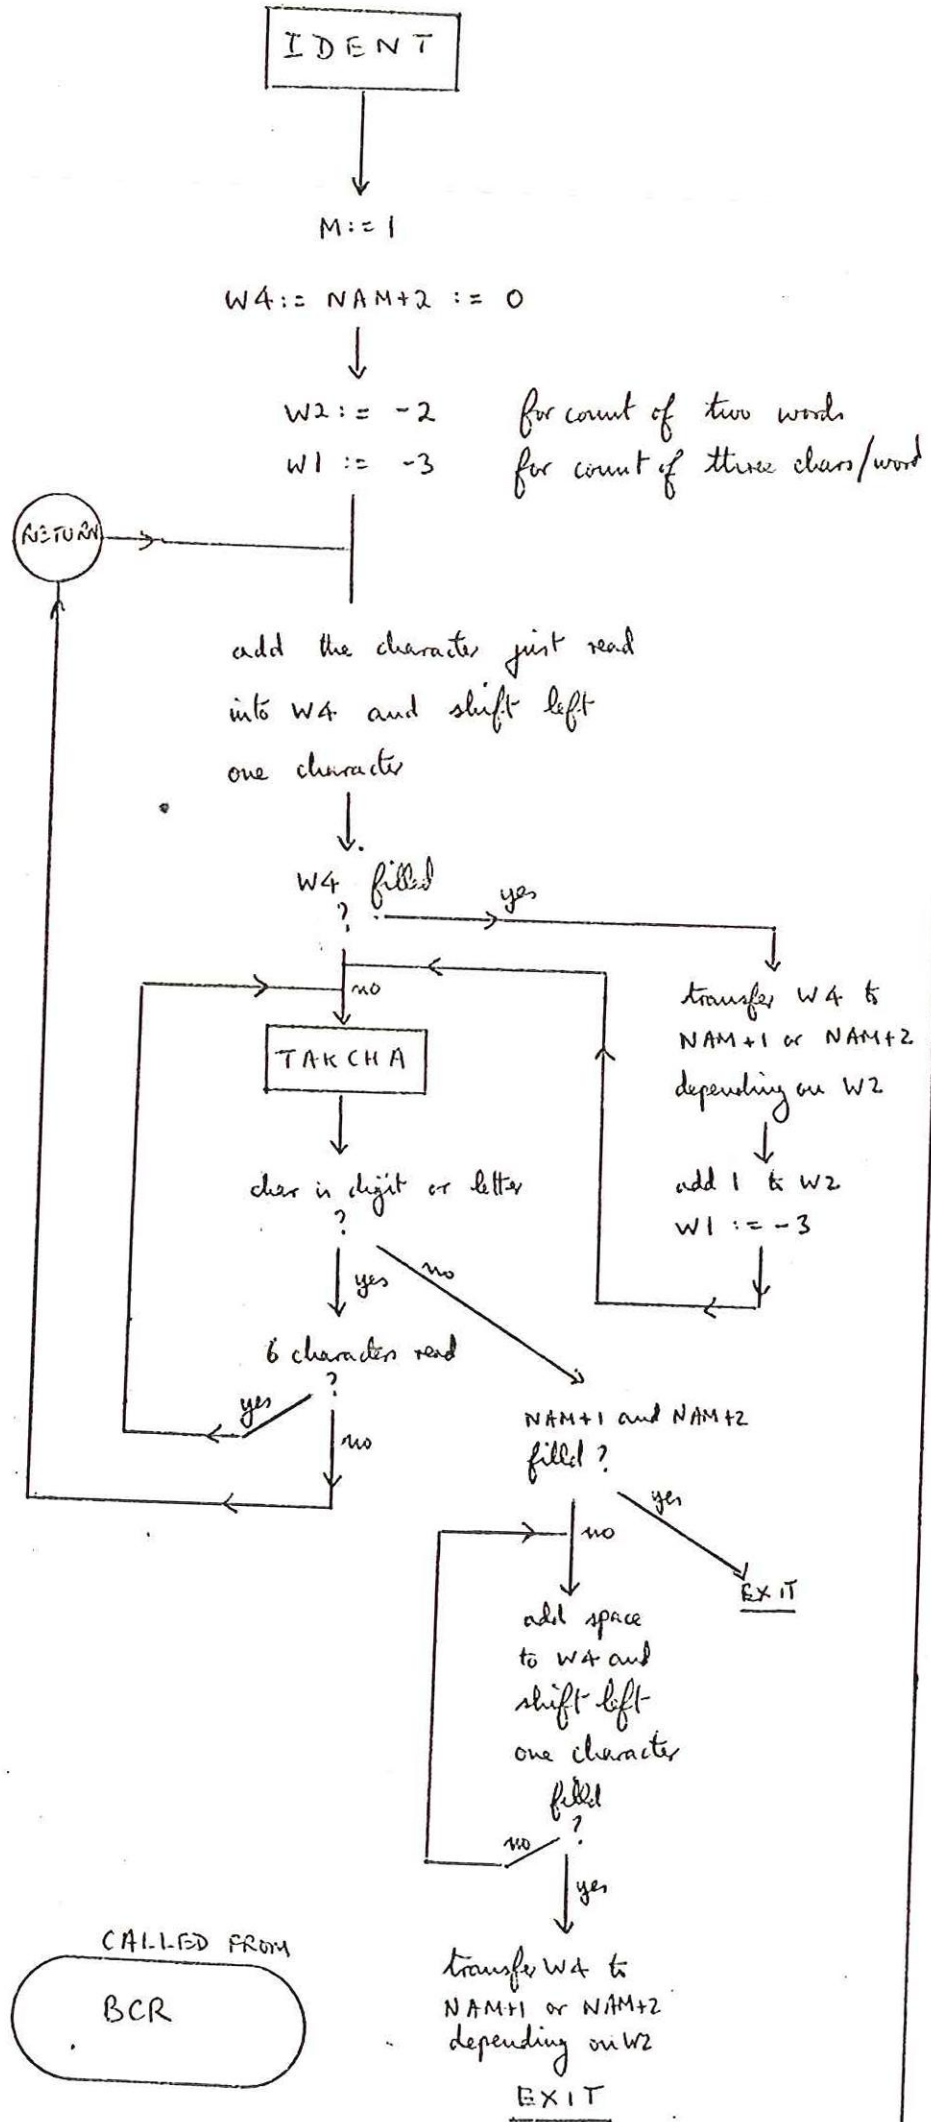 IDENT
M:=1
W4:= NAM+2 := 0
W2:= -2 for count of two words
W1 := -3 for count of three chars/word
RETURN
add the character just read
into W4 and shift left
one character
W4 filled
?
yes
no
transfer W4 to
NAM+1 or NAM+2
depending on W2
TAKCHA
add 1 to W2
W1 := -3
char is digit or letter
?
yes
no
6 characters read
?
yes
no
NAM+1 and NAM+2
filled ?
yes
no
EXIT
add space
to W4 and
shift left
one character
filled
?
no
yes
transfer W4 to
NAM+1 or NAM+2
depending on W2
EXIT
CALLED FROM
BCR